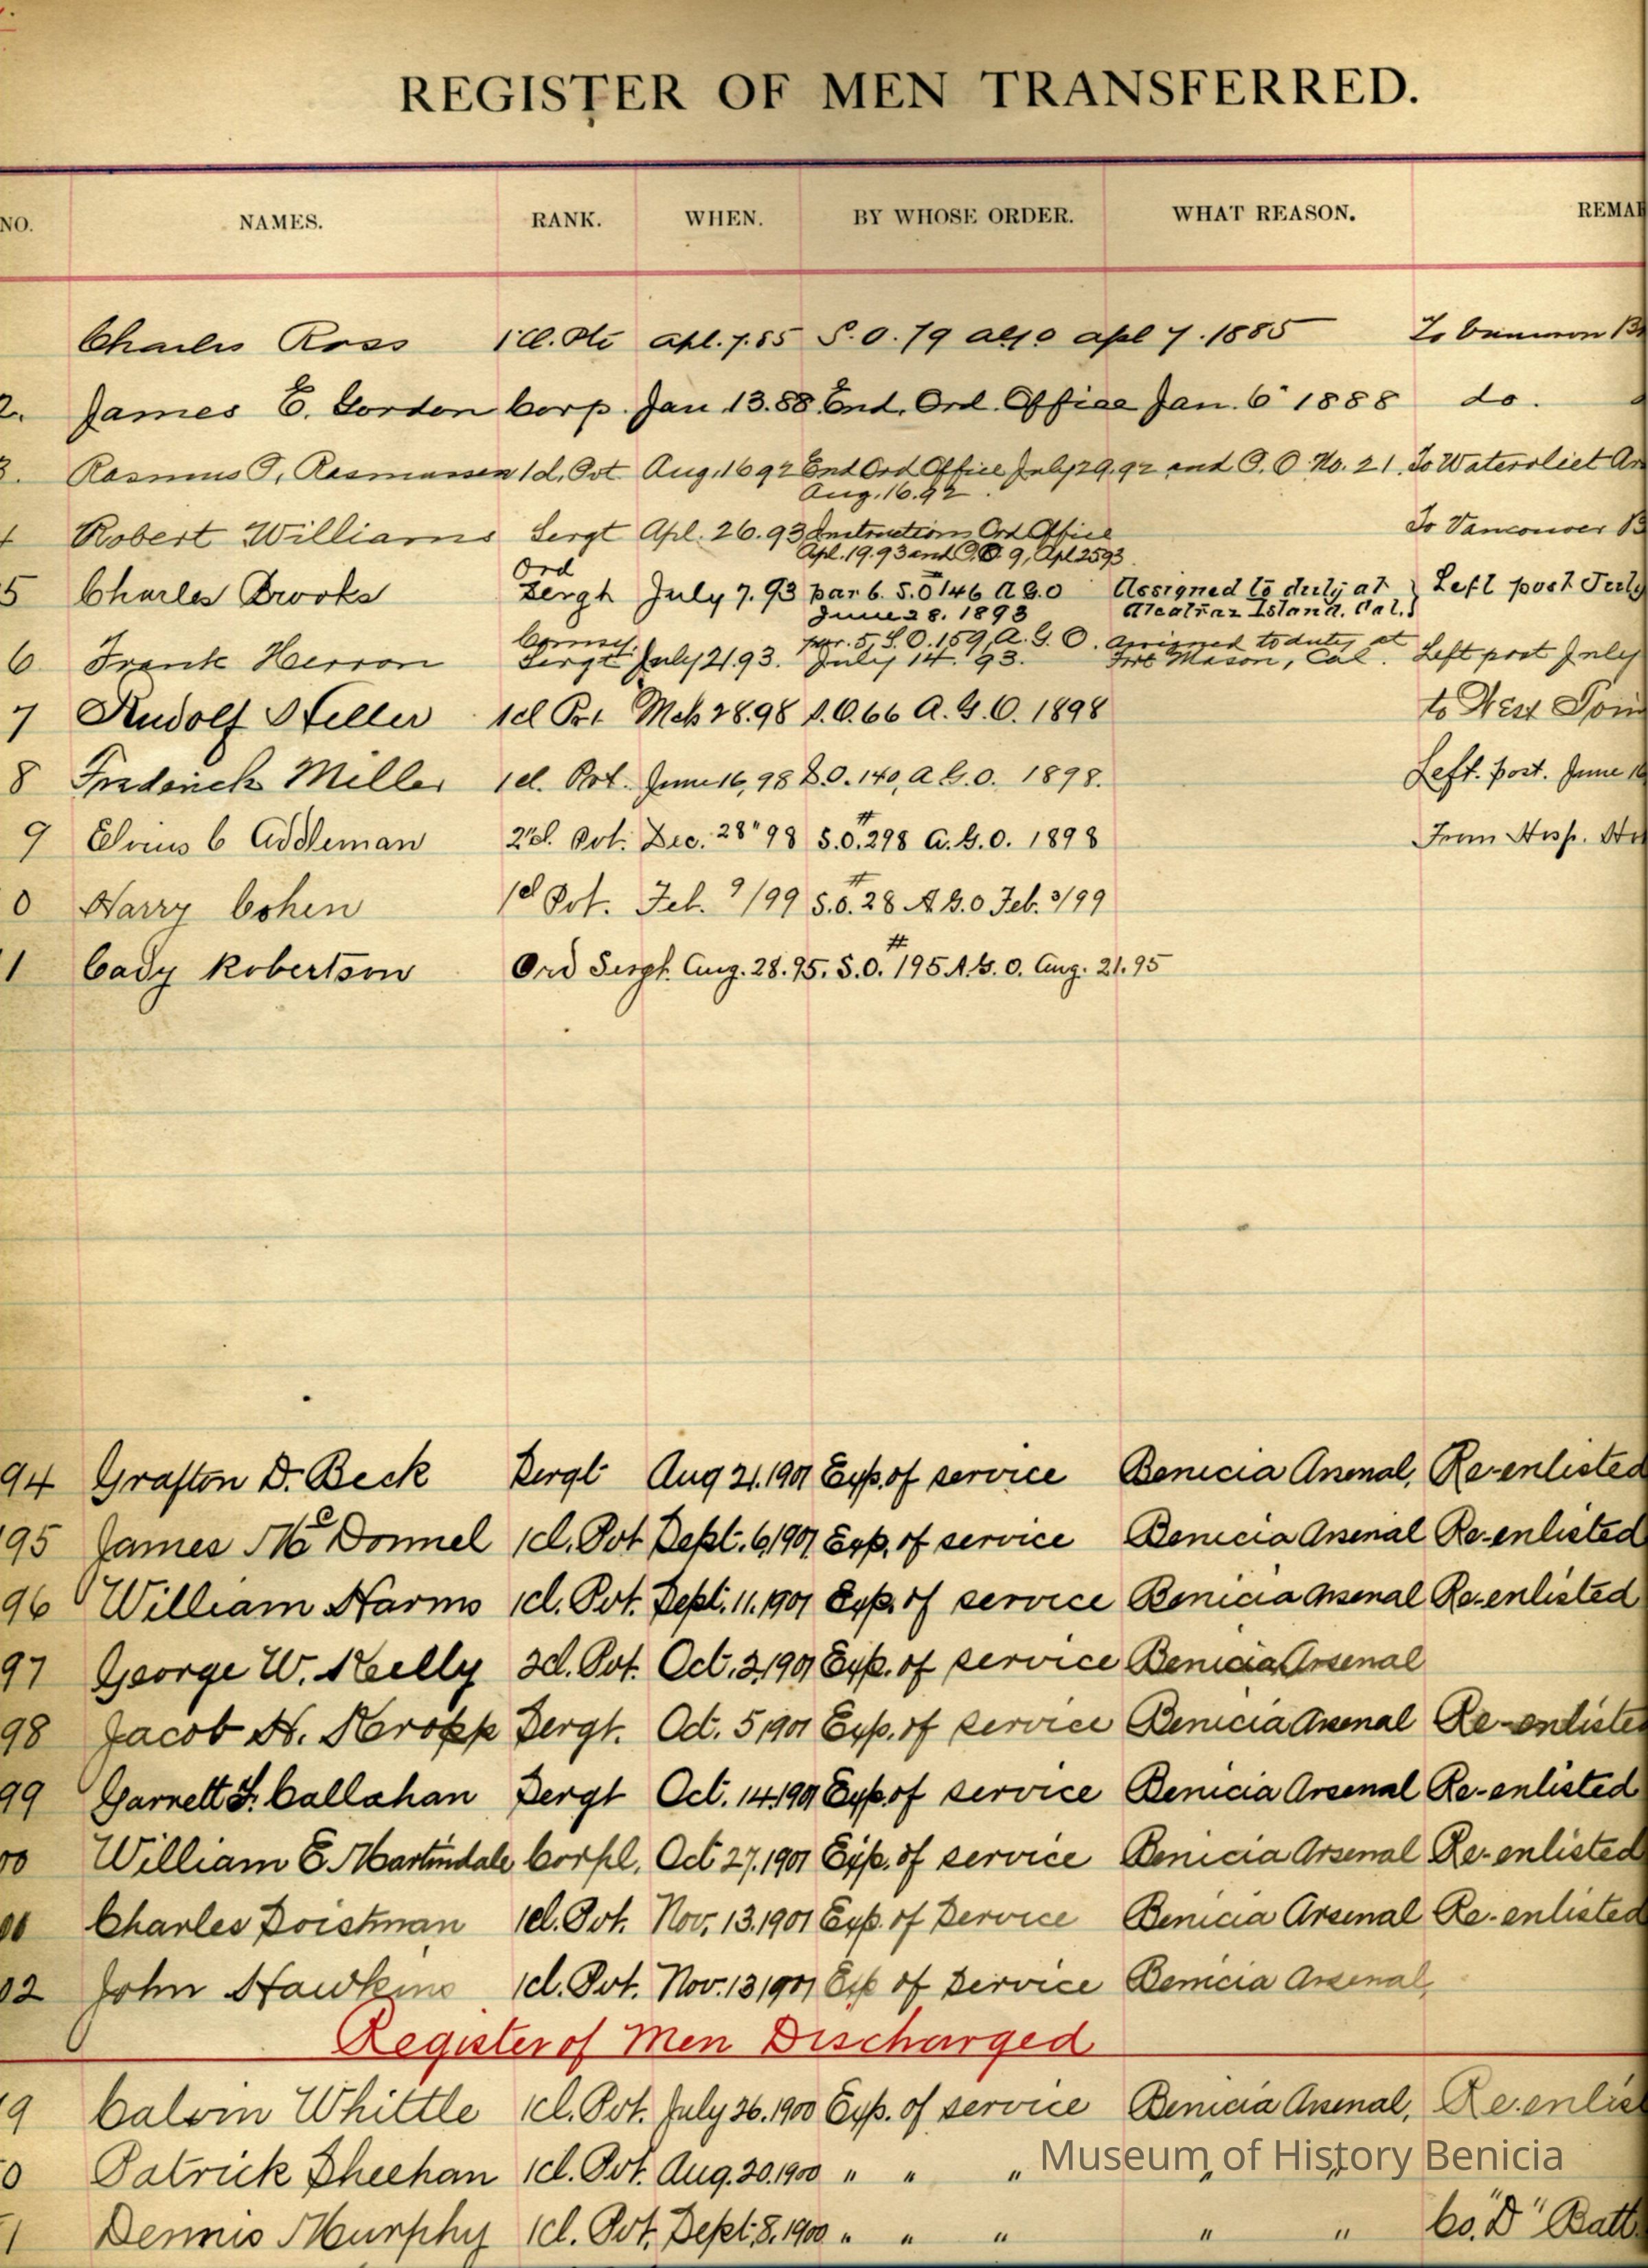 REGISTER OF MEN TRANSFERRED.
NO. NAMES. RANK. WHEN. BY WHOSE ORDER. WHAT REASON. REMAR
Charles Ross 1 Cl. Pvt Apl. 7. 85 S. O. 79 Apl 7. 1885 To
2. James E. Gordon Corp. Jan 13. 88 End. Ord. Office Jan. 6" 1888 do.
3. Rasmus Rasmussen 1 cl. Pvt Aug. 16 92 End Ord Office July 29. 92 and P. O. No. 21. To Watervliet Ar
Aug. 16. 92.
4 Robert Williams Sergt Apl. 26. 93 Instructions Ord Office To Vancouver B
Apl. 19. 93 and P. O. 9, Apl 25 93
Ord
5 Charles Brooks Sergt July 7. 93 par 6. S. O 146 A G. O Assigned to duty at } Left post July
June 28. 1893 Alcatraz Island. Cal.
Comsy. par. 5, S. O. 159, A. G. O. assigned to duty at
6 Frank Herron Sergt July 21 93. July 14. 93. Fort Mason, Cal. Left post July
7 Rudolf Heller 1 cl Pvt Mch 28. 98 S. O. 66 A. G. O. 1898 to West Poin
8 Frederick Miller 1 cl. Pvt. June 16, 98 S. O. 140, A. G. O. 1898. Left. post. June 1
9 C Addleman 2 cl. Pvt. Dec. 28" 98 S. O. # 298 A. G. O. 1898 From Hosp.
0 Harry Cohen 1 cl Pvt. Feb. 9/99 S. O. # 28 A. G. O Feb. 3/99
1 Cady Robertson Ord Sergt. Aug. 28. 95. S. O. # 195 A. G. O. Aug. 21. 95
94 Grafton D. Beck Sergt Aug 21. 1901 Exp. of service Benicia Arsenal, Re-enlisted
95 James McDonnel 1 cl. Pvt Sept. 6, 1901 Exp. of service Benicia Arsenal Re-enlisted
96 William Harms 1 cl. Pvt. Sept. 11. 1901 Exp. of service Benicia Arsenal Re-enlisted
97 George W. Kelly 2 cl. Pvt. Oct. 2, 1901 Exp. of service Benicia Arsenal
98 Jacob H. Kropp Sergt. Oct. 5, 1901 Exp. of service Benicia Arsenal Re-enlisted
99 Garrett F. Callahan Sergt Oct. 14, 1901 Exp. of service Benicia Arsenal Re-enlisted
00 William E. Martindale Corpl. Oct 27. 1901 Exp. of service Benicia Arsenal Re-enlisted
01 Charles Doistman 1 cl. Pvt. Nov. 13. 1901 Exp. of Service Benicia Arsenal Re-enlisted
02 John Hawkins 1 cl. Pvt. Nov. 13 1901 Exp of Service Benicia Arsenal,
Register of Men Discharged
9 Calvin Whittle 1 cl. Pvt. July 26. 1900 Exp. of service Benicia Arsenal, Re-enlis
0 Patrick Sheehan 1 cl. Pvt. Aug. 20. 1900 " " " " "
Museum of History Benicia
1 Dennis Murphy 1 cl. Pvt. Sept. 8. 1900 " " " " " Co. "D" Batt.